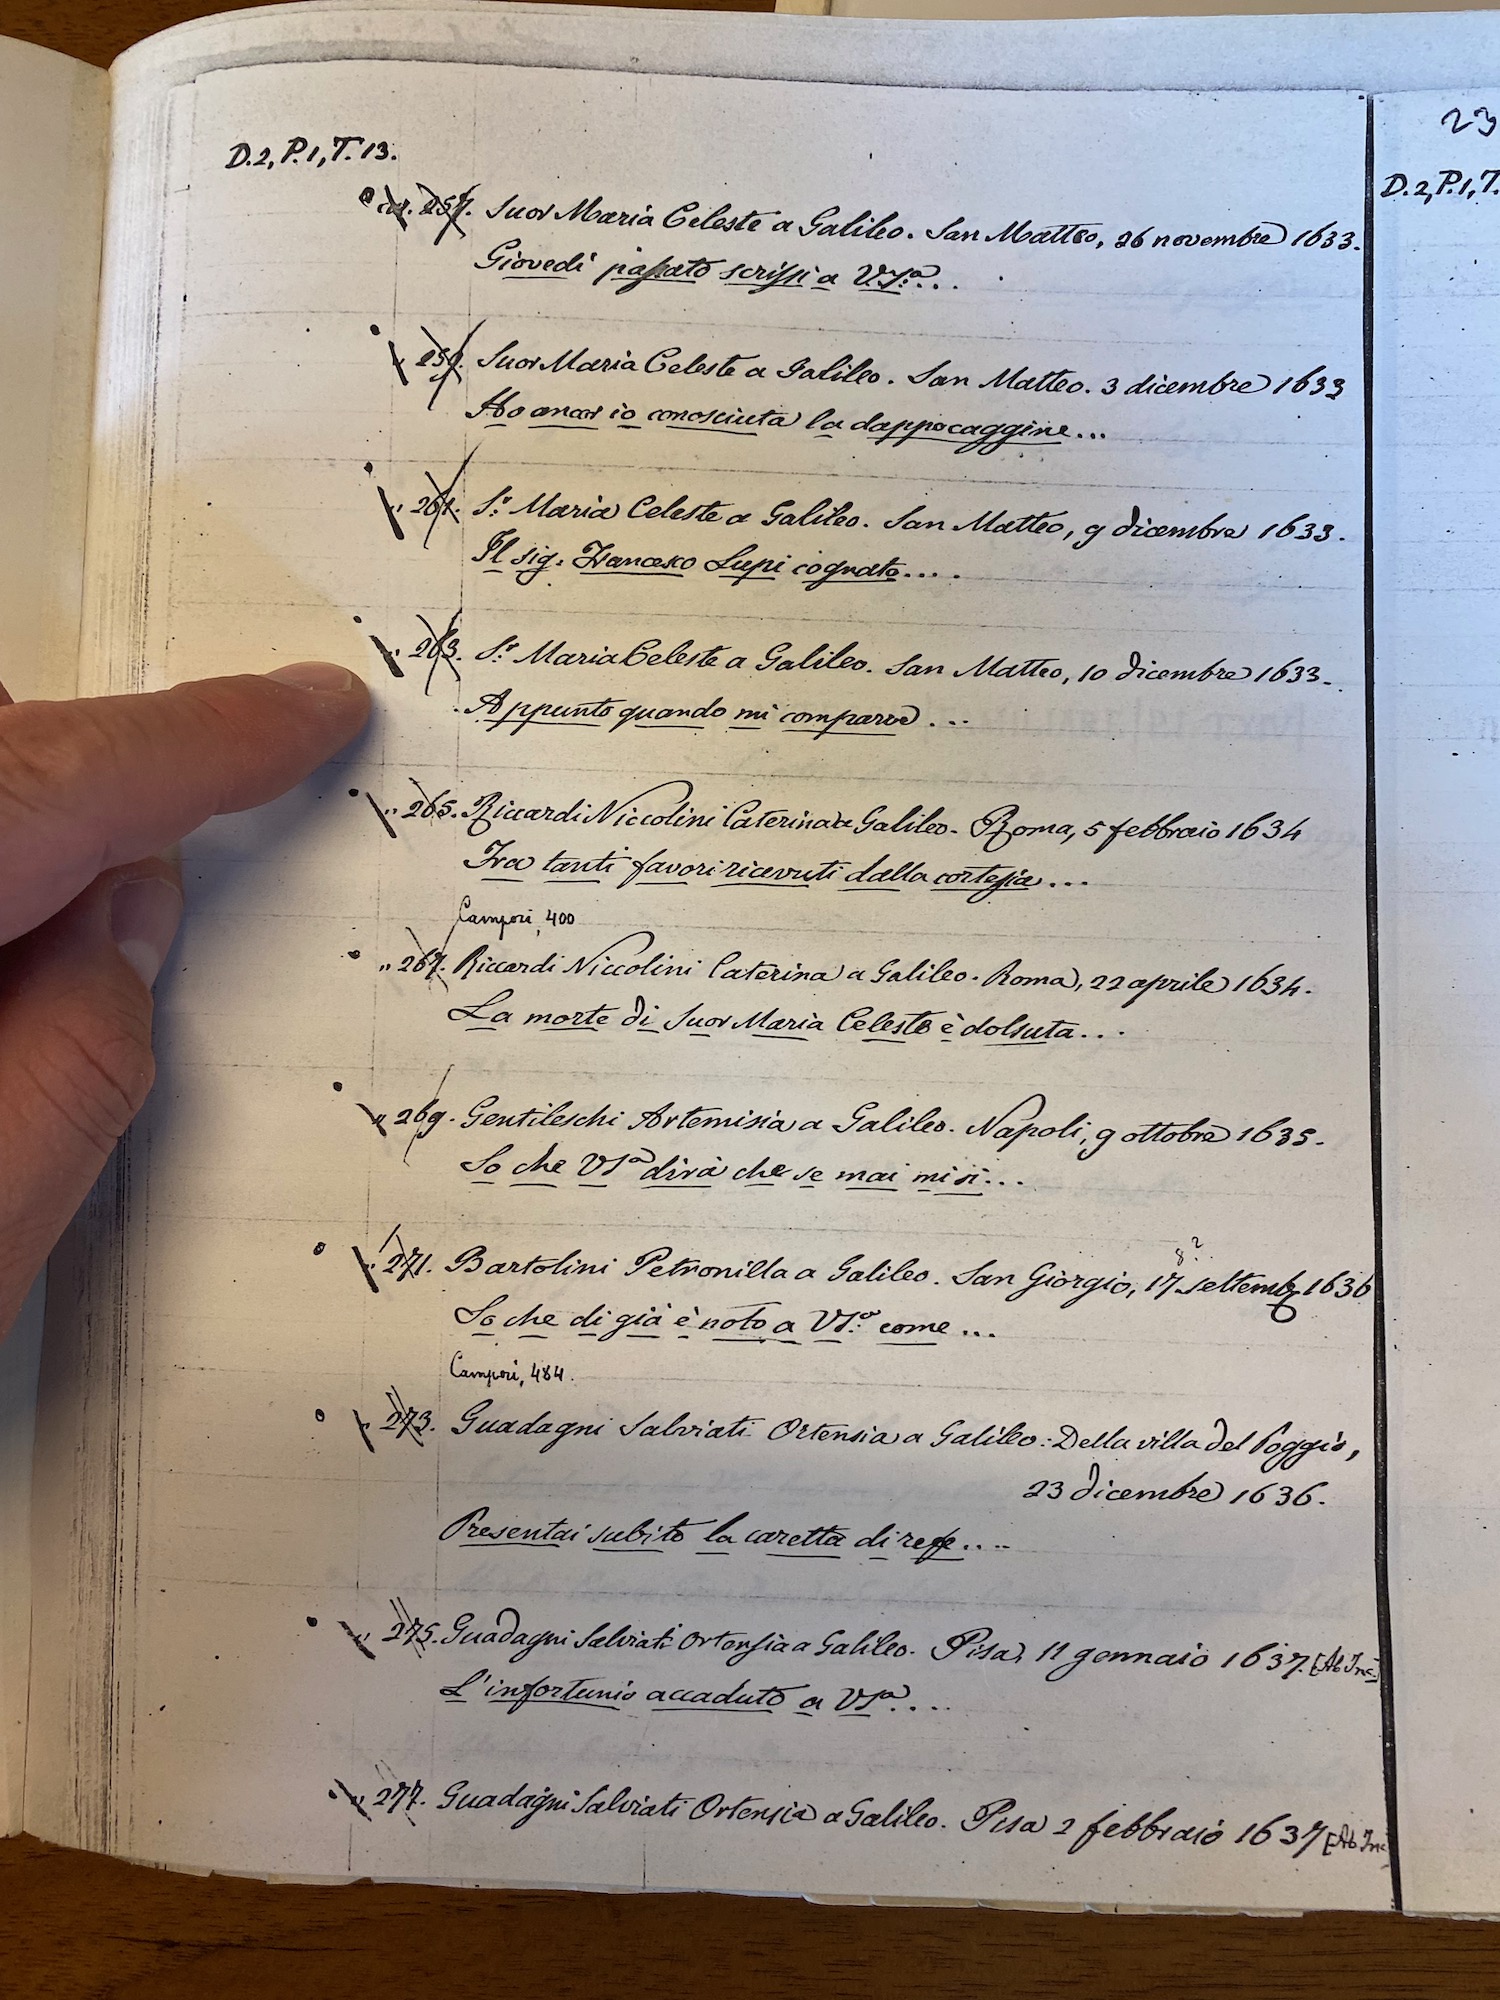 23
D.2, P.1, T. 13.
D.2, P.1, T.
car. 257. Suor Maria Celeste a Galileo. San Matteo, 26 novembre 1633.
Giovedì passato scrissi a V.S.ª...
„ 259. Suor Maria Celeste a Galileo. San Matteo. 3 dicembre 1633
Ho ancor io conosciuta la dappocaggine...
„ 261. S.r Maria Celeste a Galileo. San Matteo, 9 dicembre 1633.
Il sig. Francesco Lupi cognato....
„ 263. S.r Maria Celeste a Galileo. San Matteo, 10 dicembre 1633.
Appunto quando mi comparve...
„ 265. Riccardi Niccolini Caterina a Galileo. Roma, 5 febbraio 1634
Fra tanti favori ricevuti dalla cortesia...
Campori, 400
„ 267. Riccardi Niccolini Caterina a Galileo. Roma, 22 aprile 1634.
La morte di Suor Maria Celeste è dolsuta...
„ 269. Gentileschi Artemisia a Galileo. Napoli, 9 ottobre 1635.
So che VSª dirà che se mai mi si...
8?
„ 271. Bartolini Petronilla a Galileo. San Giorgio, 17 settemb. 1636
So che di già è noto a VS.ª come...
Campori, 484.
„ 273. Guadagni Salviati Ortensia a Galileo: Della villa del Poggio,
23 dicembre 1636.
Presentai subito la caretta di refe....
„ 275. Guadagni Salviati Ortensia a Galileo. Pisa, 11 gennaio 1637. [Ab Inc.]
L'infortunio accaduto a VSª....
„ 277. Guadagni Salviati Ortensia a Galileo. Pisa 2 febbraio 1637 [Ab Inc